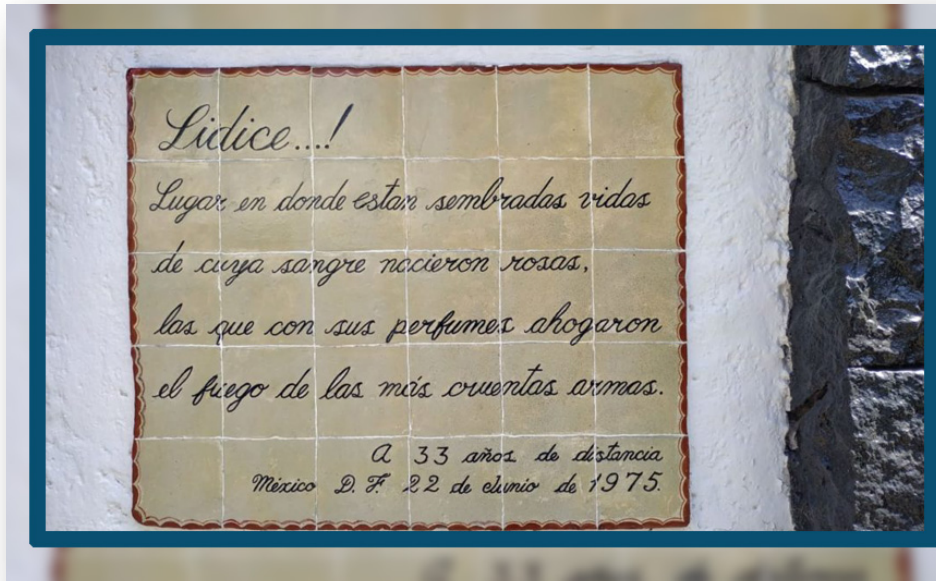 Lidice...!
Lugar en donde estan sembradas vidas
de cuya sangre nacieron rosas,
las que con sus perfumes ahogaron
el fuego de las más cruentas armas.
A 33 años de distancia
México D. F. 22 de Junio de 1975.